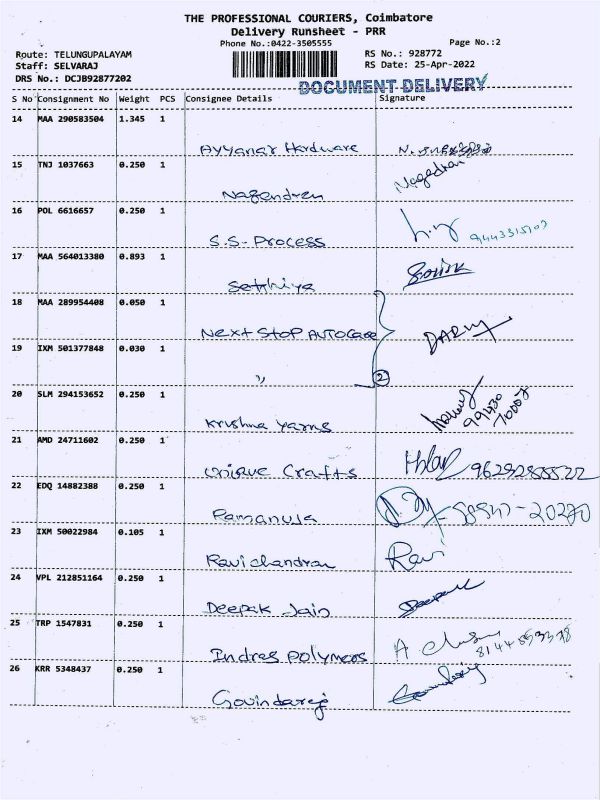 THE PROFESSIONAL COURIERS, Coimbatore
Delivery Runsheet - PRR
Phone No.:0422-3505555
Page No.:2
Route: TELUNGUPALAYAM
RS No.: 928772
Staff: SELVARAJ
RS Date: 25-Apr-2022
DRS No.: DCJB92877202
DOCUMENT DELIVERY
S No Consignment No Weight PCS Consignee Details Signature
14 MAA 290583504 1.345 1
Ayyanar Hardware
15 TNJ 1037663 0.250 1
Nagendren Nagedran
16 POL 6616657 0.250 1
S.S-Process
17 MAA 564013380 0.893 1
Setthiya
18 MAA 289954408 0.050 1
Next Stop AUTOCADE
19 IXM 501377848 0.030 1
" 2
20 SLM 294153652 0.250 1
Krishna yarns
21 AMD 24711602 0.250 1
Unique Crafts
22 EDQ 14882388 0.250 1
Ramanuja
23 IXM 50022984 0.105 1
Ravichandran Ravi
24 VPL 212851164 0.250 1
Deepak Jain Deepak
25 TRP 1547831 0.250 1
Indres polymers
26 KRR 5348437 0.250 1
Govindaraj